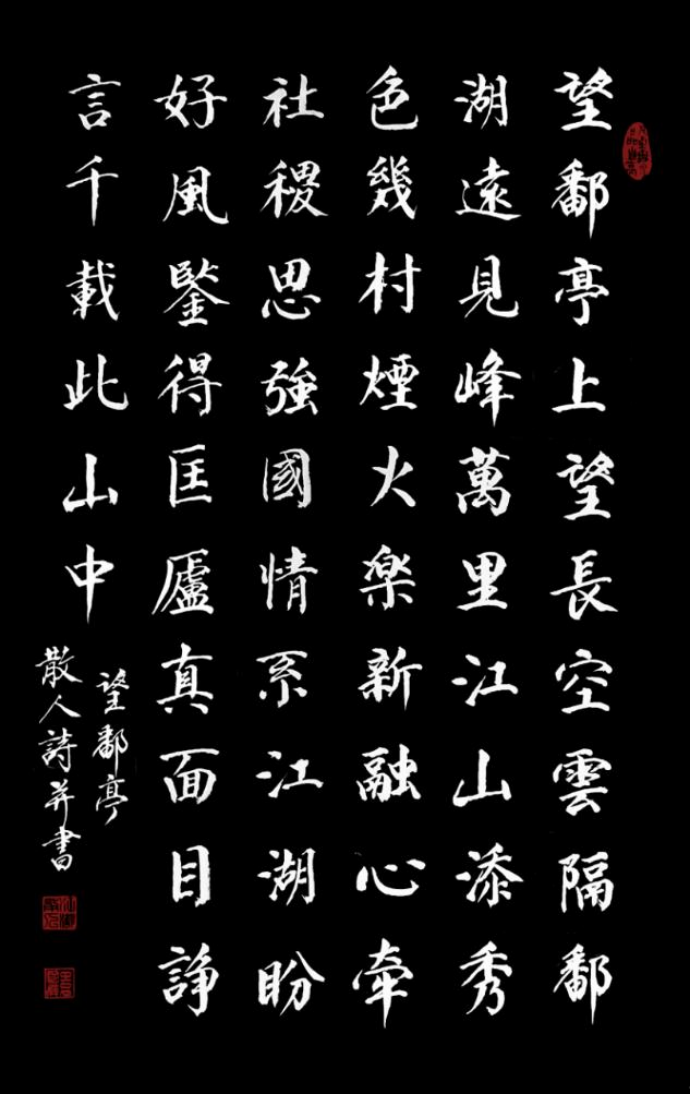 望鄱亭上望長空雲隔鄱
湖遠見峰萬里江山添秀
色幾村煙火樂新融心牽
社稷思強國情系江湖盼
好風鑒得匡廬真面目諍
言千載此山中
望鄱亭
散人詩并書